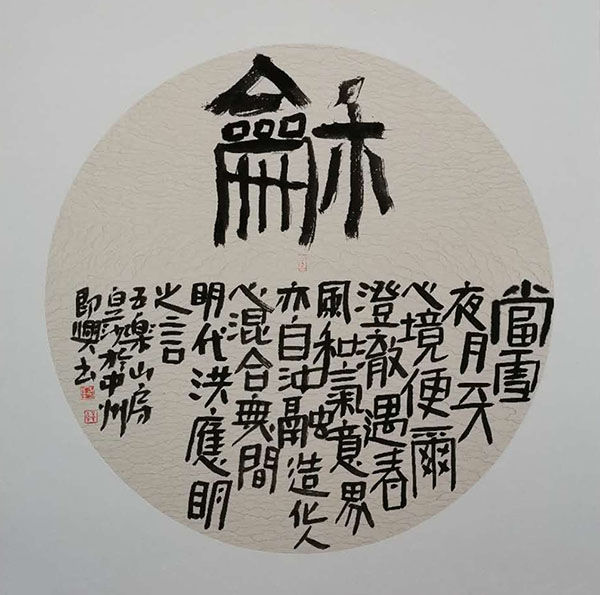 龢
當雪
夜月天
心境便爾
澄澈遇春
風和氣意界
亦自沖融造化人
心混合無間
明代洪應明
之言
五樂山房
於中州
即興